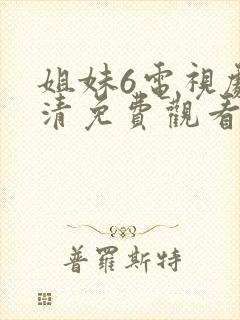 姐妹6電視劇
清免費觀看
普羅斯特